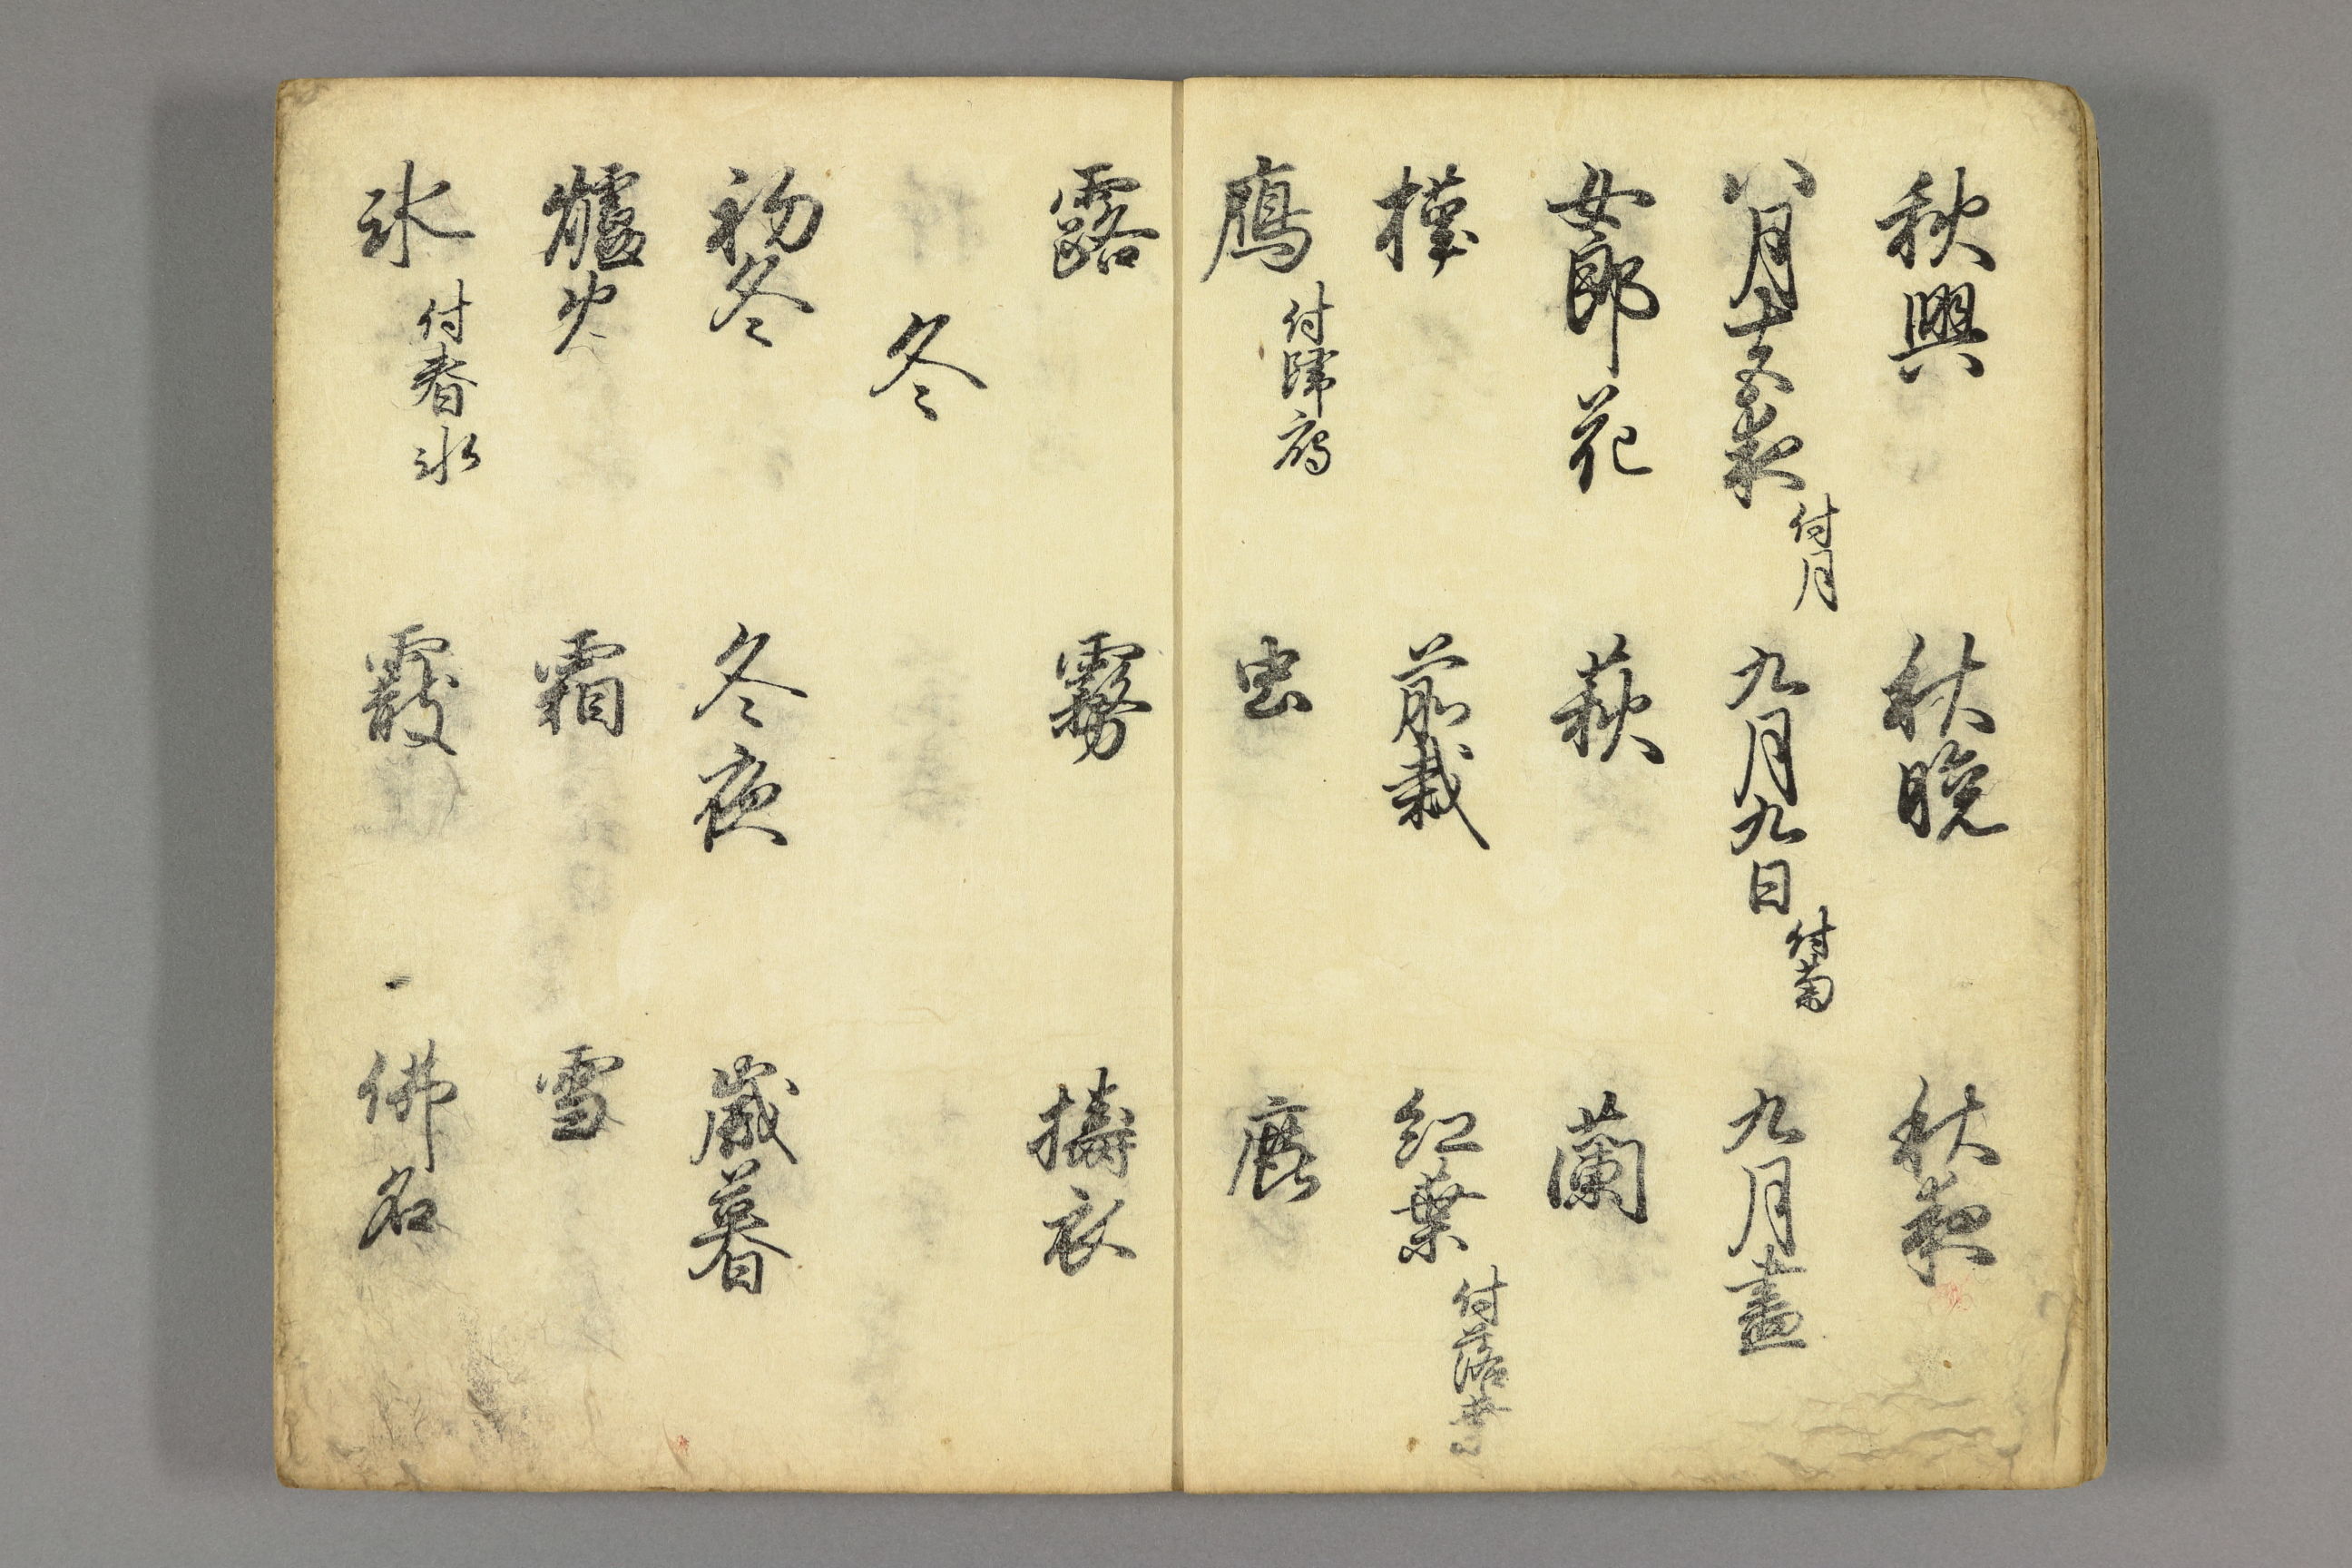 秋興 秋晩 秋夜
八月十五夜付月 九月九日付菊 九月盡
女郎花 萩 蘭
槿 前栽 紅葉付落葉
鴈付歸鴈 虫 鹿
露 霧 擣衣
冬
初冬 冬夜 歳暮
爐火 霜 雪
氷付春氷 霰 佛名